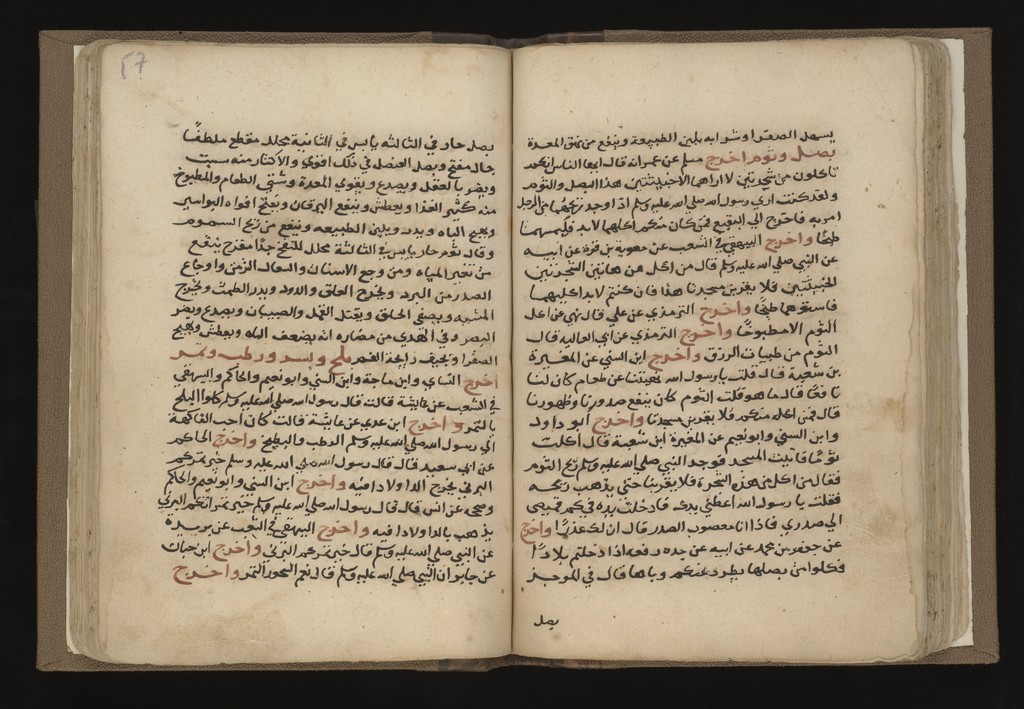 يسهل الصفرا وشرابه يلين الطبيعة وينفع من المعدة
بصل وثوم اخرج مسلم عن عمر انه قال ايها الناس انكم
تاكلون من شجرتين لا اراهما الا خبيثتين هذا البصل والثوم
ولقد كنت اري رسول الله صلي الله عليه وسلم اذا وجد ريحهما من الرجل
امر به فاخرج الي البقيع فمن كان منكم اكلهما لابد فليمتهما
طبخا واخرج البيهقي في الشعب عن معوية بن قرة عن ابيه
عن النبي صلي الله عليه وسلم قال من اكل من هاتين الشجرتين
الخبيثتين فلا يقربن مسجدنا هذا فان كنتم لابد اكليهما
فاميتوهما طبخا واخرج الترمذي عن علي قال نهي عن اكل
الثوم الا مطبوخا واخرج الترمذي عن ابي العالية قال
الثوم من طيبات الرزق واخرج ابن السني عن المغيرة
بن شعبة قال قلت يا رسول الله عن طعام كان لنا
نافعا قال ما هو قلت الثوم كان ينفع صدورنا وظهورنا
قال فمن اكله منكم فلا يقربن مسجدنا واخرج ابو داود
وابن السني وابو نعيم عن المغيرة ابن شعبة قال اكلت
ثوما فاتيت المسجد فوجد النبي صلي الله عليه وسلم ريح الثوم
فقال من اكل من هذه الشجرة فلا يقربنا حتي يذهب ريحه
فقلت يا رسول الله اعطني يدك فادخلت يده في كم قميصي
الي صدري فاذا انا معصوب الصدر قال ان لك عذرا واخرج
عن جعفر بن محمد عن ابيه عن جده رفعه اذا دخلتم بلادا
فكلوا من بصلها يطرد عنكم وباها قال في الموجز
بصل
٤٧
بصل حار في الثالثه يابس في الثانية محلل مقطع ملطف
جال مفتح وبصل العنصل في ذلك اقوي والاكثار منه
ويضر بالعقل ويصدع ويقوي المعدة وشتي الطعام والمطبوخ
منه كثير الغذا ويعطش وينفع اليرقان ويفتح افواه البواسير
ويهيج الباه ويدر ويلين الطبيعه وينفع من ريح السموم
وقال ثوم حار يابس في الثالثة محلل للنفخ جدا مقرح ينفع
من تغير المياه ومن وجع الاسنان والسعال الزمن واوجاع
الصدر من البرد ويخرج العلق والدود ويدر الطمث ويخرج
المشيمه ويصفي الحلق ويقتل القمل والصيبان ويصدع ويضر
البصر وفي الهدي من مضاره انه يضعف الباه ويعطش ويهيج
الصفرا ويجيف رايحة الفم بلح وبسر ورطب وتمر
اخرج النساي وابن ماجة وابن السني وابو نعيم والحاكم والبيهقي
في الشعب عن عايشة قالت قال رسول الله صلي الله عليه وسلم كلوا البلح
بالتمر واخرج ابن عدي عن عايشة قالت كان احب الفاكهة
الي رسول الله صلي الله عليه وسلم الرطب والبطيخ واخرج الحاكم
عن ابي سعيد قال قال رسول الله صلي الله عليه وسلم خير تمركم
البرني يخرج الدا ولا دا فيه واخرج ابن السني وابو نعيم والحاكم
وصححه عن انس قال قال رسول الله صلي الله عليه وسلم خير تمراتكم البرني
يذهب بالدا ولا دا فيه واخرج البيهقي في الشعب عن بريدة
عن النبي صلي الله عليه وسلم قال خير تمركم البرني واخرج ابن حبان
عن جابر ان النبي صلي الله عليه وسلم قال نعم السحور التمر واخرج